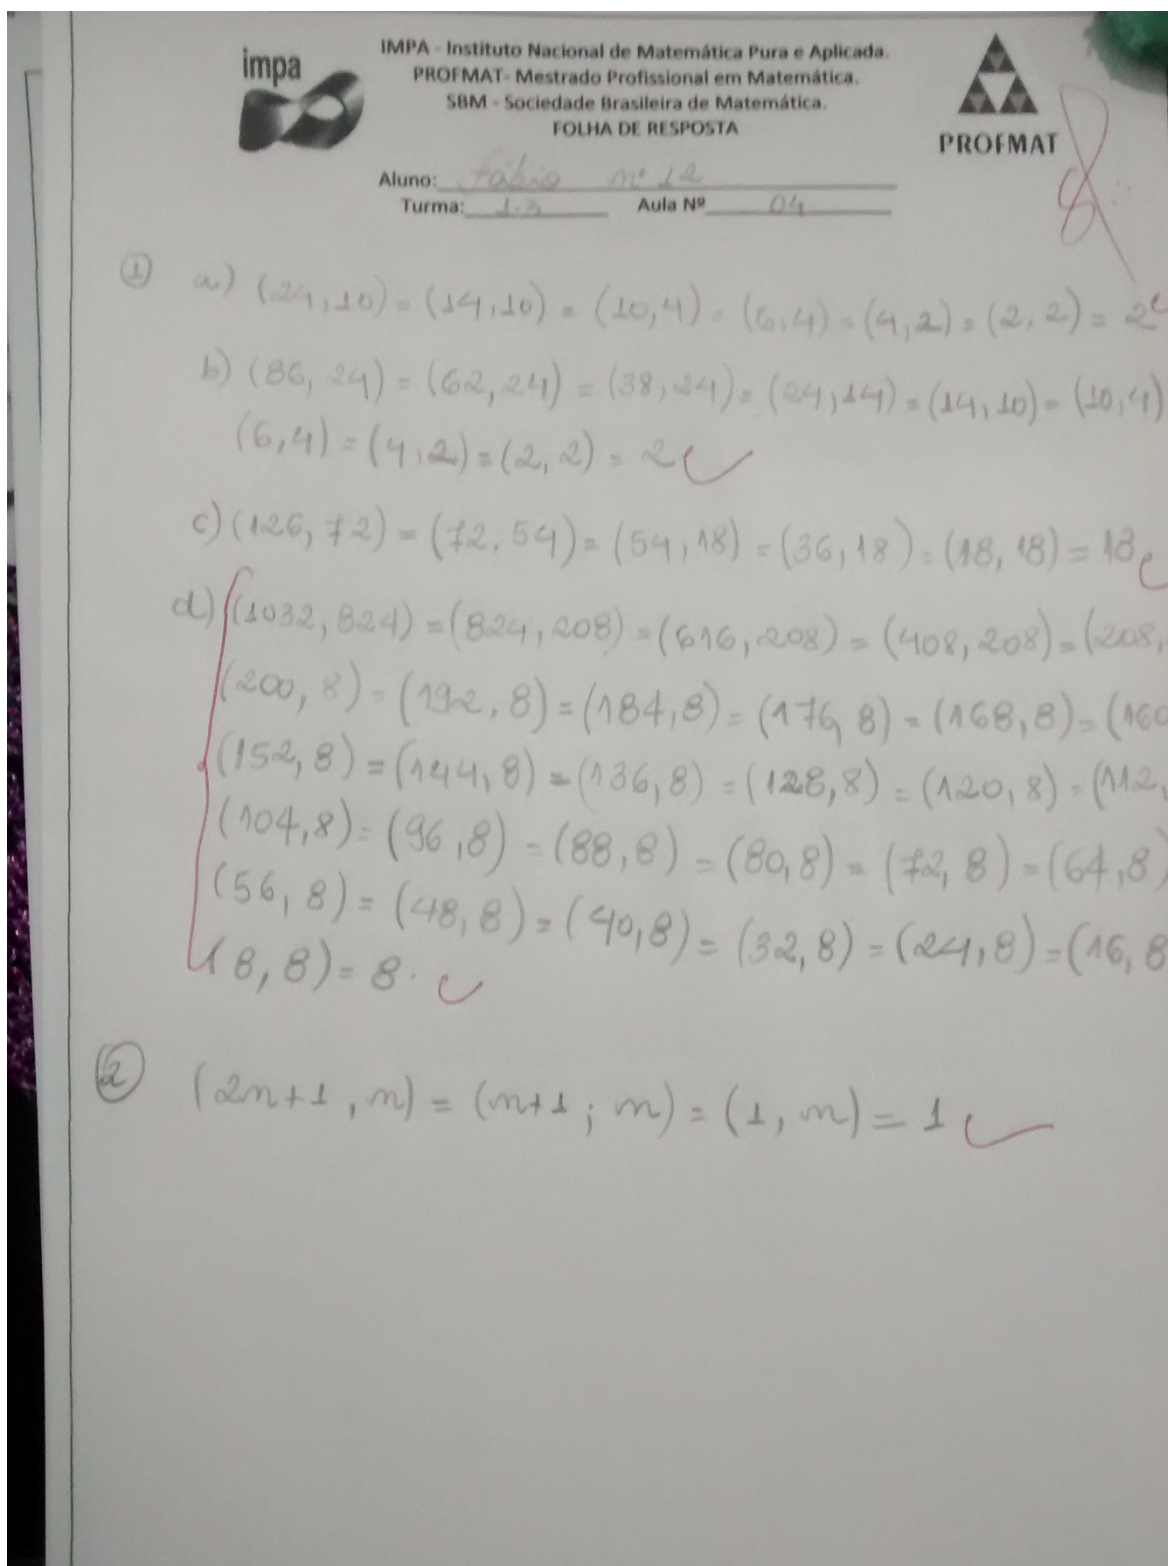 impa
IMPA - Instituto Nacional de Matemática Pura e Aplicada.
PROFMAT- Mestrado Profissional em Matemática.
SBM - Sociedade Brasileira de Matemática.
FOLHA DE RESPOSTA
PROFMAT
8
Aluno: Fábio nº 12
Turma: 1.3 Aula Nº 04
① a) (24,10) = (14,10) = (10,4) = (6,4) = (4,2) = (2,2) = 2
b) (86,24) = (62,24) = (38,24) = (24,14) = (14,10) = (10,4)
(6,4) = (4,2) = (2,2) = 2
c) (126,72) = (72,54) = (54,18) = (36,18) = (18,18) = 18
d) (1032,824) = (824,208) = (616,208) = (408,208) = (208,
(200,8) = (192,8) = (184,8) = (176,8) = (168,8) = (160
(152,8) = (144,8) = (136,8) = (128,8) = (120,8) = (112,
(104,8) = (96,8) = (88,8) = (80,8) = (72,8) = (64,8)
(56,8) = (48,8) = (40,8) = (32,8) = (24,8) = (16,8
(8,8) = 8.
② (2n+1,n) = (n+1;n) = (1,n) = 1